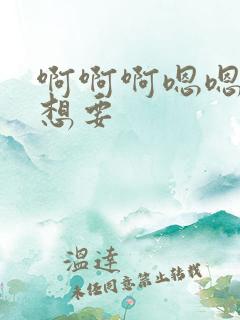 啊啊啊嗯嗯
想要
温達
未经同意禁止转载